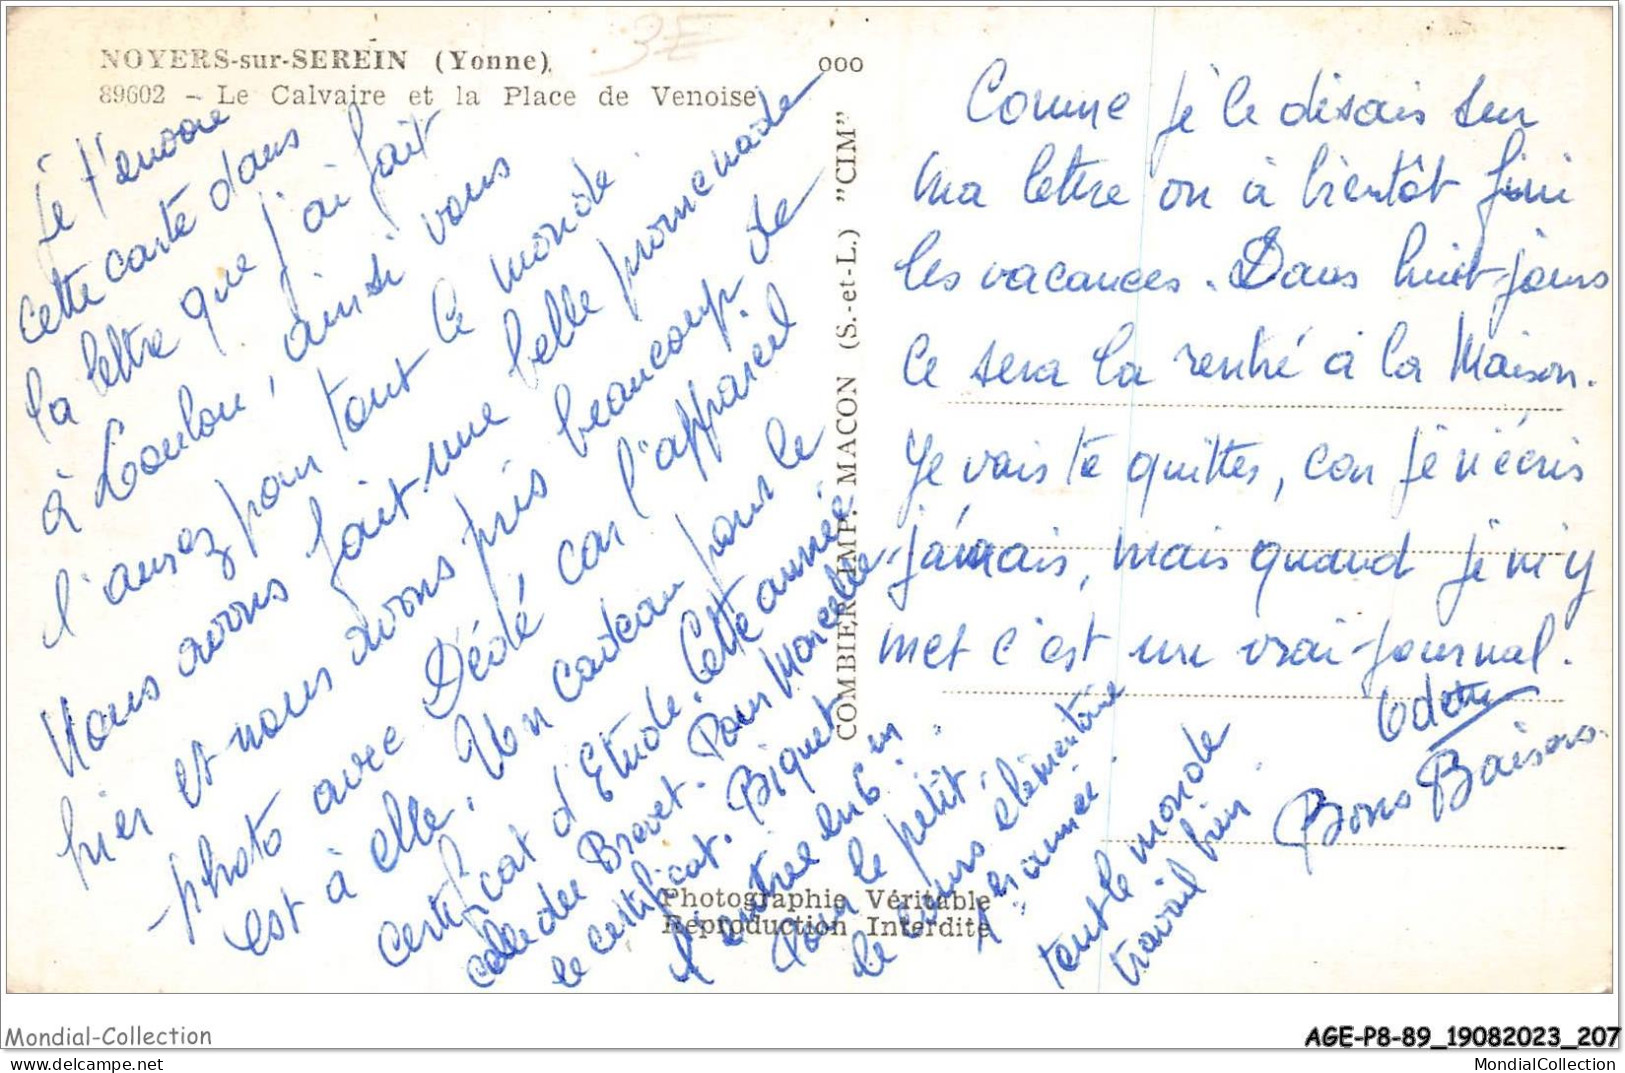 NOYERS-sur-SEREIN (Yonne)
89602 - Le Calvaire et la Place de Venoise
3E
ooo
Je t'envoie
cette carte dans
la lettre que j'ai fait
à Loulou, ainsi vous
l'aurez pour tout le monde.
Nous avons fait une belle promenade
hier et nous avons pris beaucoup de
photo avec Dédé car l'appareil
est à elle. Un cadeau pour le
certificat d'Etude. Cette année
celle des Brevet. Pour Marcelle
le certificat. Biquet
l'entrée en 6
Pour le petit,
le cours élémentaire
1 er année.
tout le monde
travail bien
COMBIER IMP. MACON (S.-et-L.) "CIM"
Photographie Véritable
Reproduction Interdite
Comme je le disais sur
ma lettre on à bientôt fini
les vacances. Dans huit jours
ce sera la rentré à la Maison.
Je vais te quittes, car je n'écris
jamais, mais quand je m'y
met c'est un vrai journal.
Odette
Bons Baisers.
Mondial-Collection
AGE-P8-89_19082023_207
MondialCollection